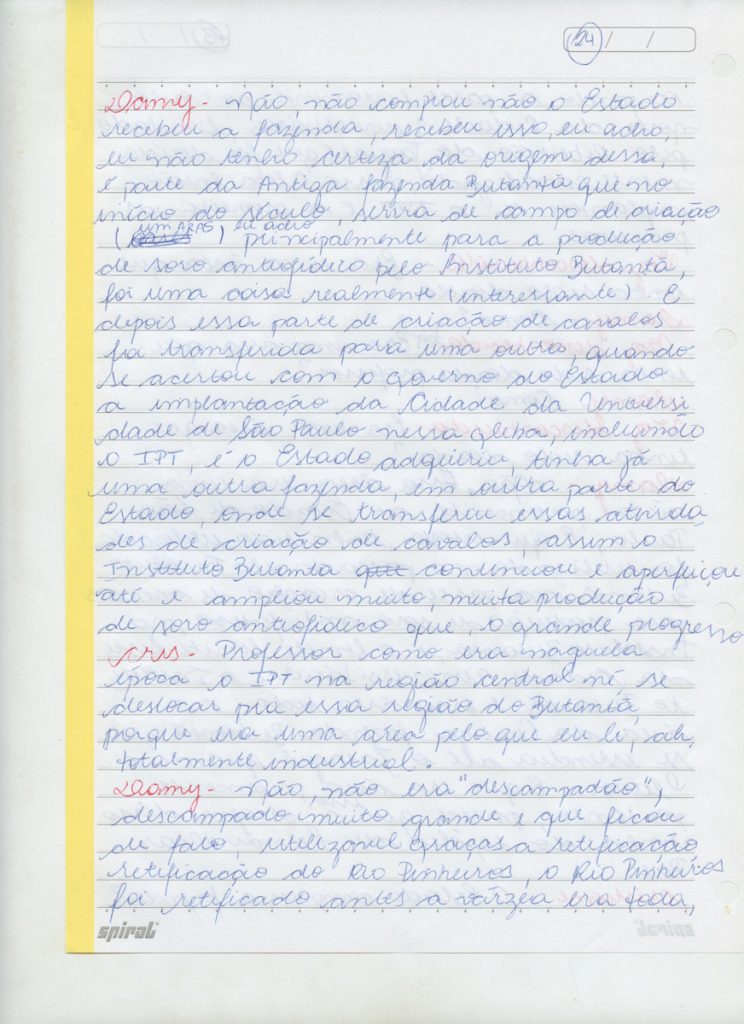 24 / /
Damy - Não, não comprou não o Estado
recebeu a fazenda, recebeu isso, eu acho,
eu não tenho certeza da origem dessa,
é parte da Antiga fazenda Butantã que no
início do século, servia de campo de criação
( um ARAS eu acho ) principalmente para a produção
de soro antiofídico pelo Instituto Butantã,
foi uma coisa realmente (interessante) E
depois essa parte de criação de cavalos
foi transferida para uma outra, quando
se acertou com o governo do Estado
a implantação da Cidade da Universi
dade de São Paulo nessa gleba, incluindo
o IPT, é o Estado adquiriu, tinha já
uma outra fazenda, em outra parte do
Estado, onde se transferiu essas ativida
des de criação de cavalos, assim o
Instituto Butantã continuou e aperfeiçou
até e ampliou muito, muita produção
de soro antiofídico que, o grande progresso
Cris - Professor como era naquela
época o IPT na região central né se
deslocar pra essa região do Butantã,
porque era uma area pelo que eu li, ah,
totalmente industrial.
Damy - Não, não era "descampadão",
descampado muito grande e que ficou
de fato, utilizavel graças a retificação
retificação do Rio Pinheiros, o Rio Pinheiros
foi retificado antes a várzea era toda,
spiral